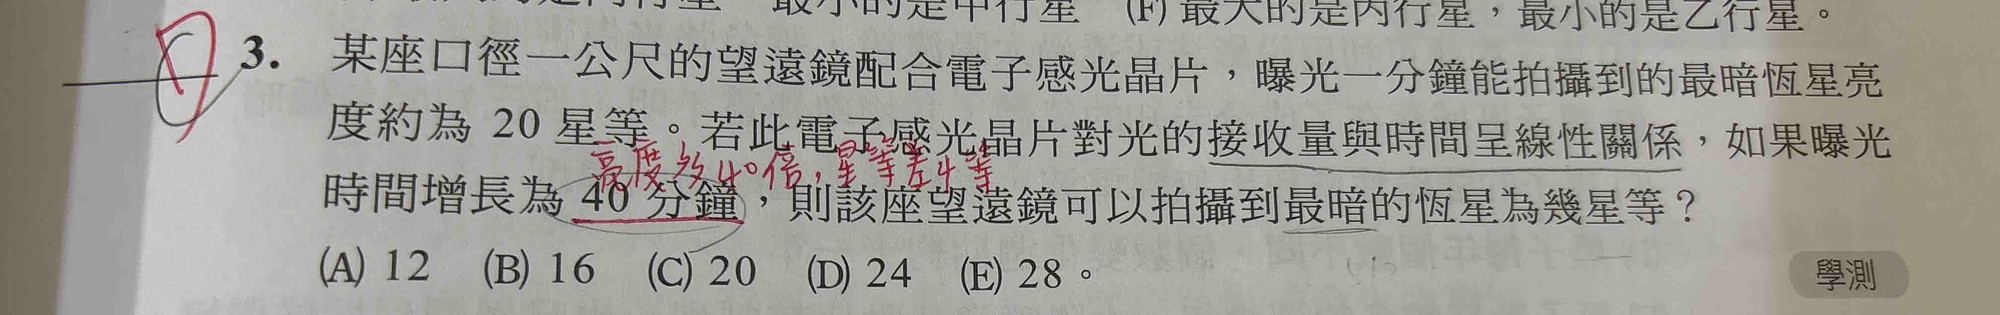 最小的是甲行星 (F) 最大的是丙行星，最小的是乙行星。
3. 某座口徑一公尺的望遠鏡配合電子感光晶片，曝光一分鐘能拍攝到的最暗恆星亮
度約為 20 星等。若此電子感光晶片對光的接收量與時間呈線性關係，如果曝光
亮度效40倍，星等差4等
時間增長為 40 分鐘，則該座望遠鏡可以拍攝到最暗的恆星為幾星等？
(A) 12 (B) 16 (C) 20 (D) 24 (E) 28。
學測